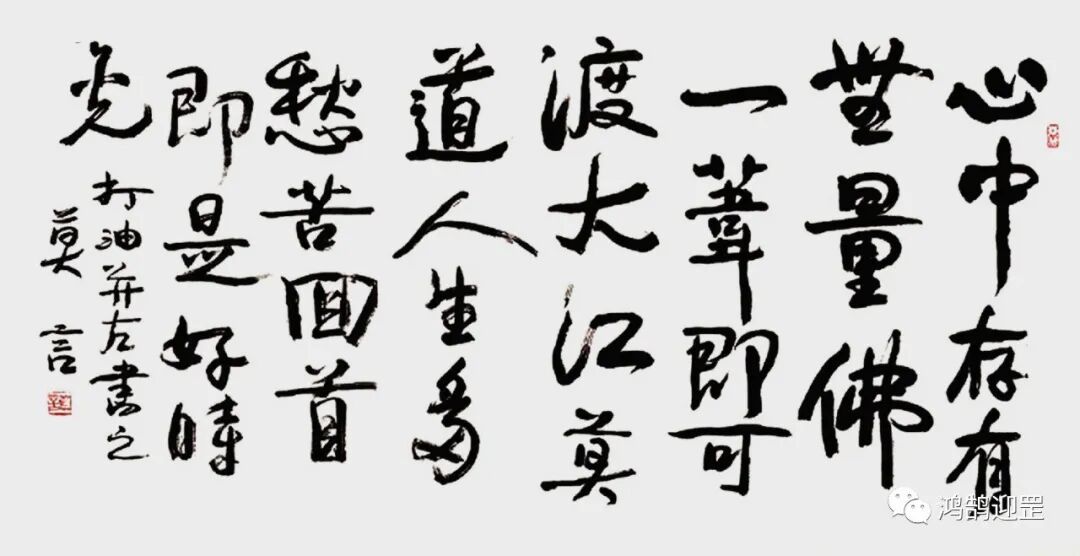 心中存有
無量佛
一葦即可
渡大江莫
道人生多
愁苦回首
即是好時
光
打油并左書之
莫言
鸿鹄迎罡